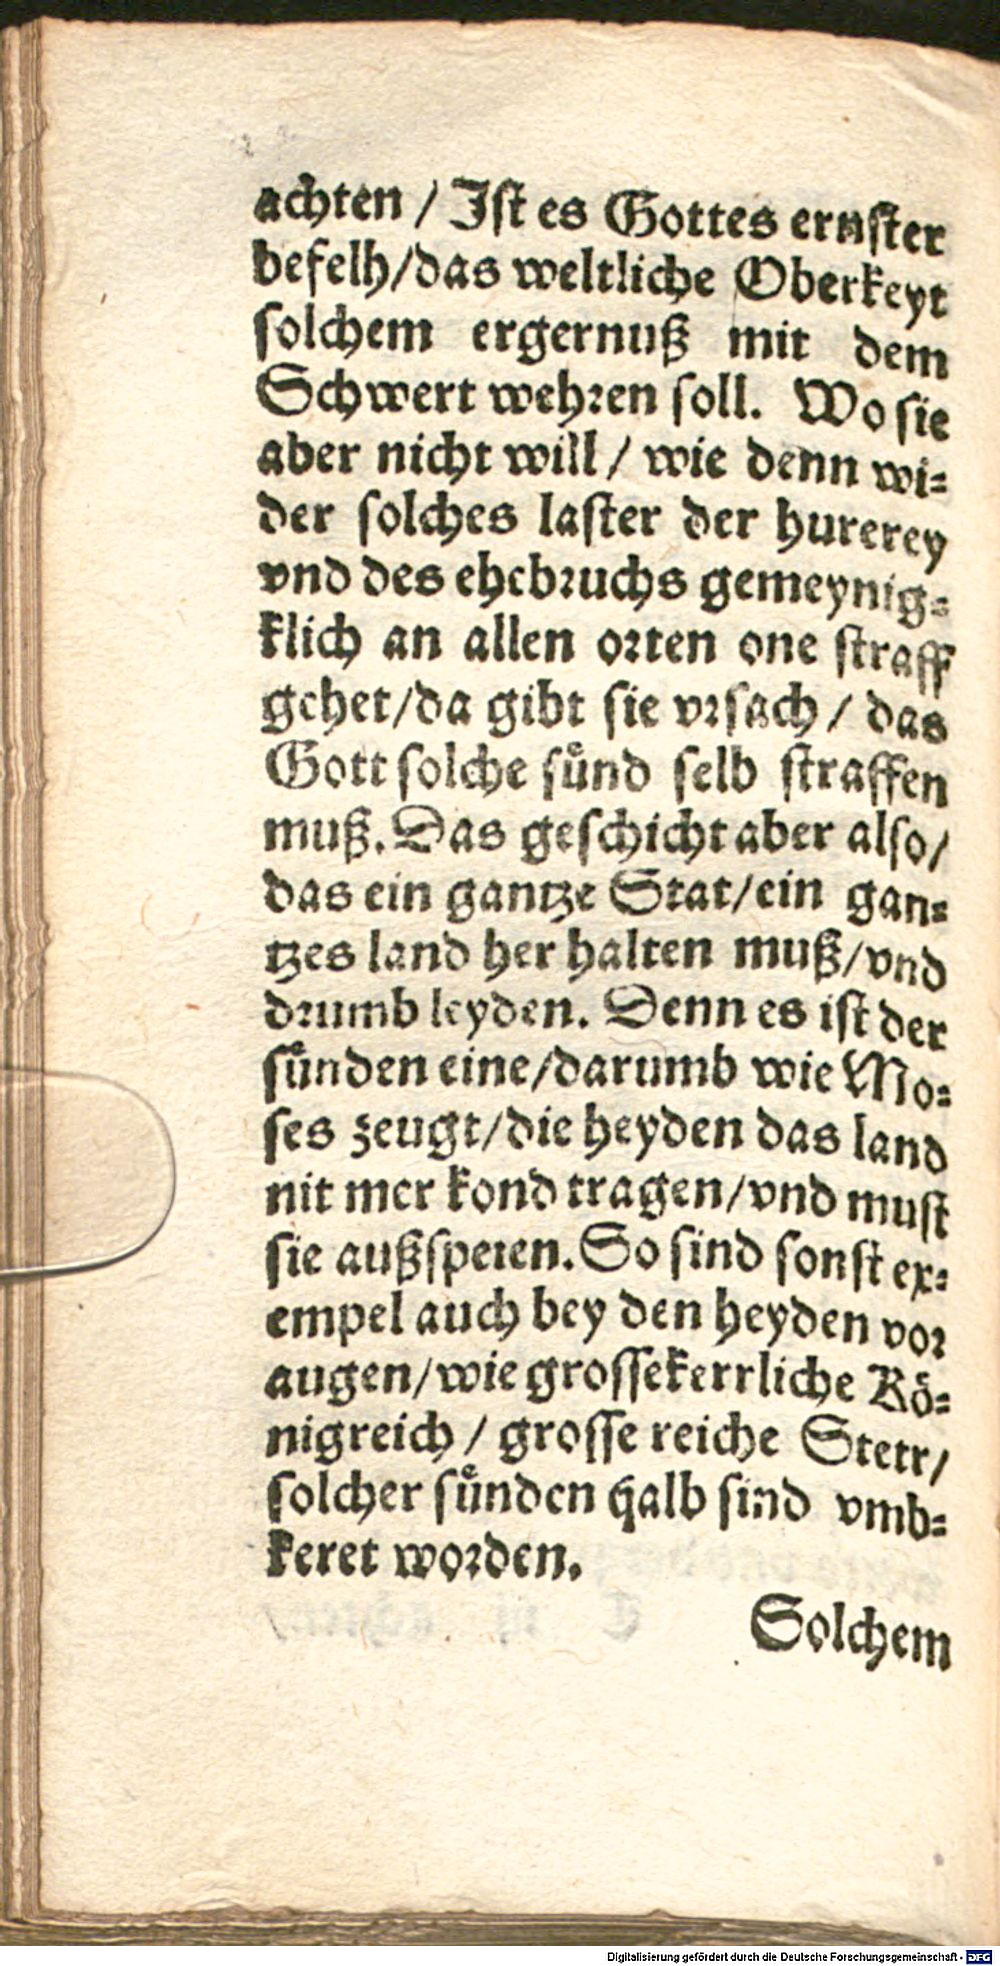 achten / Ist es Gottes ernster
befelh/das weltliche Oberkeyt
solchem ergernuß mit dem
Schwert wehren soll. Wo sie
aber nicht will / wie denn wi-
der solches laster der hurerey
vnd des ehebruchs gemeynig-
klich an allen orten one straff
gehet/da gibt sie vrsach / das
Gott solche sünd selb straffen
muß. Das geschicht aber also/
das ein gantze Stat/ein gan-
tzes land her halten muß/vnd
drumb leyden. Denn es ist der
sünden eine/darumb wie Mo-
ses zeugt/die heyden das land
nit mer kond tragen/vnd must
sie außspeien. So sind sonst ex-
empel auch bey den heyden vor
augen/wie grosse kerrliche Kö-
nigreich / grosse reiche Stett/
solcher sünden halb sind vmb-
keret worden.
Solchem
Digitalisierung gefördert durch die Deutsche Forschungsgemeinschaft - DFG